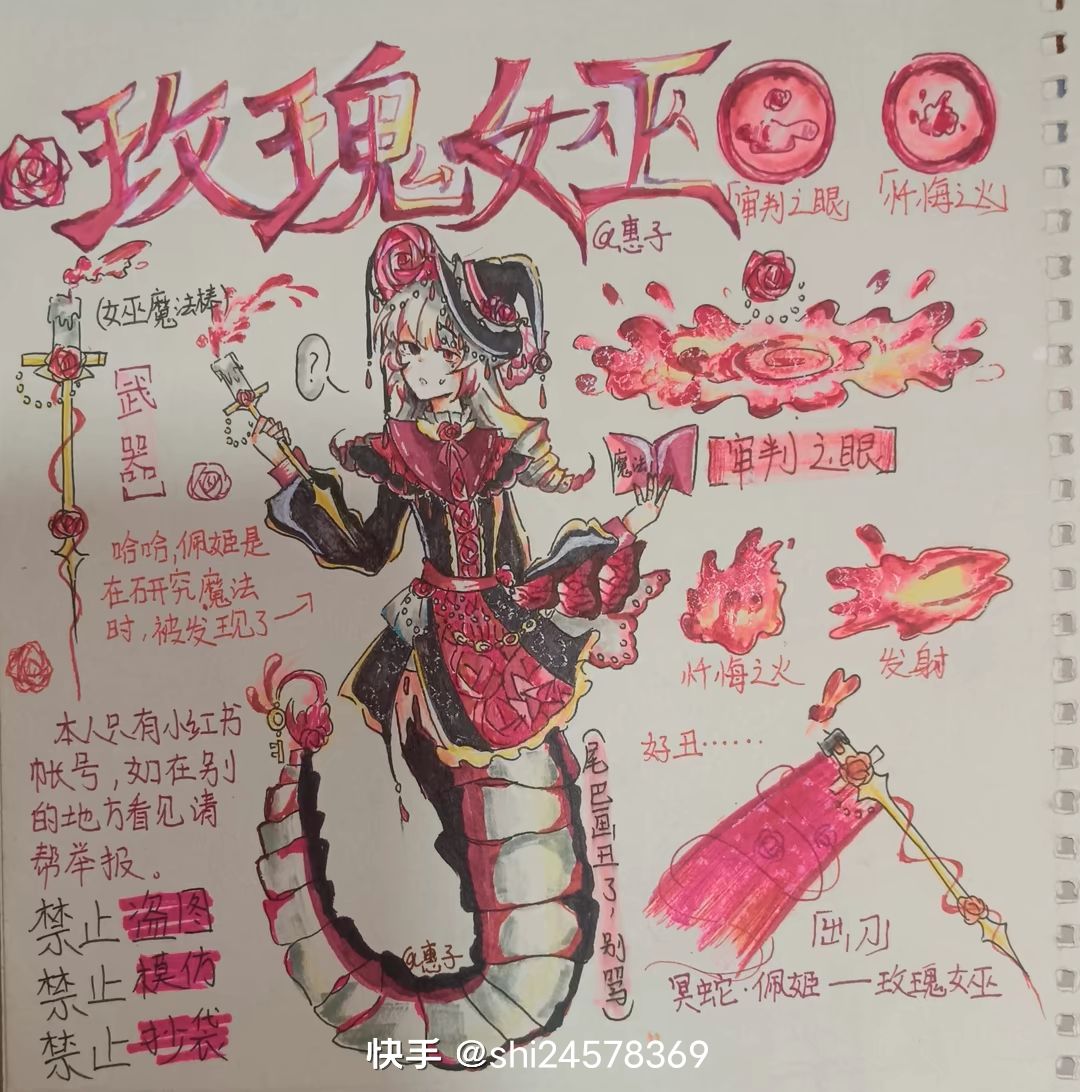 玫瑰女巫
@惠子
「审判之眼」
「忏悔之火」
(女巫魔法棒)
[武器]
?
魔法
[审判之眼]
哈哈,佩姬是
在研究魔法
时,被发现了
忏悔之火
发射
本人只有小红书
帐号,如在别
的地方看见请
帮举报。
禁止盗图
禁止模仿
禁止抄袋
好丑……
尾巴画丑了,别骂
@惠子
「出刀」
冥蛇·佩姬一玫瑰女巫
快手 @shi24578369